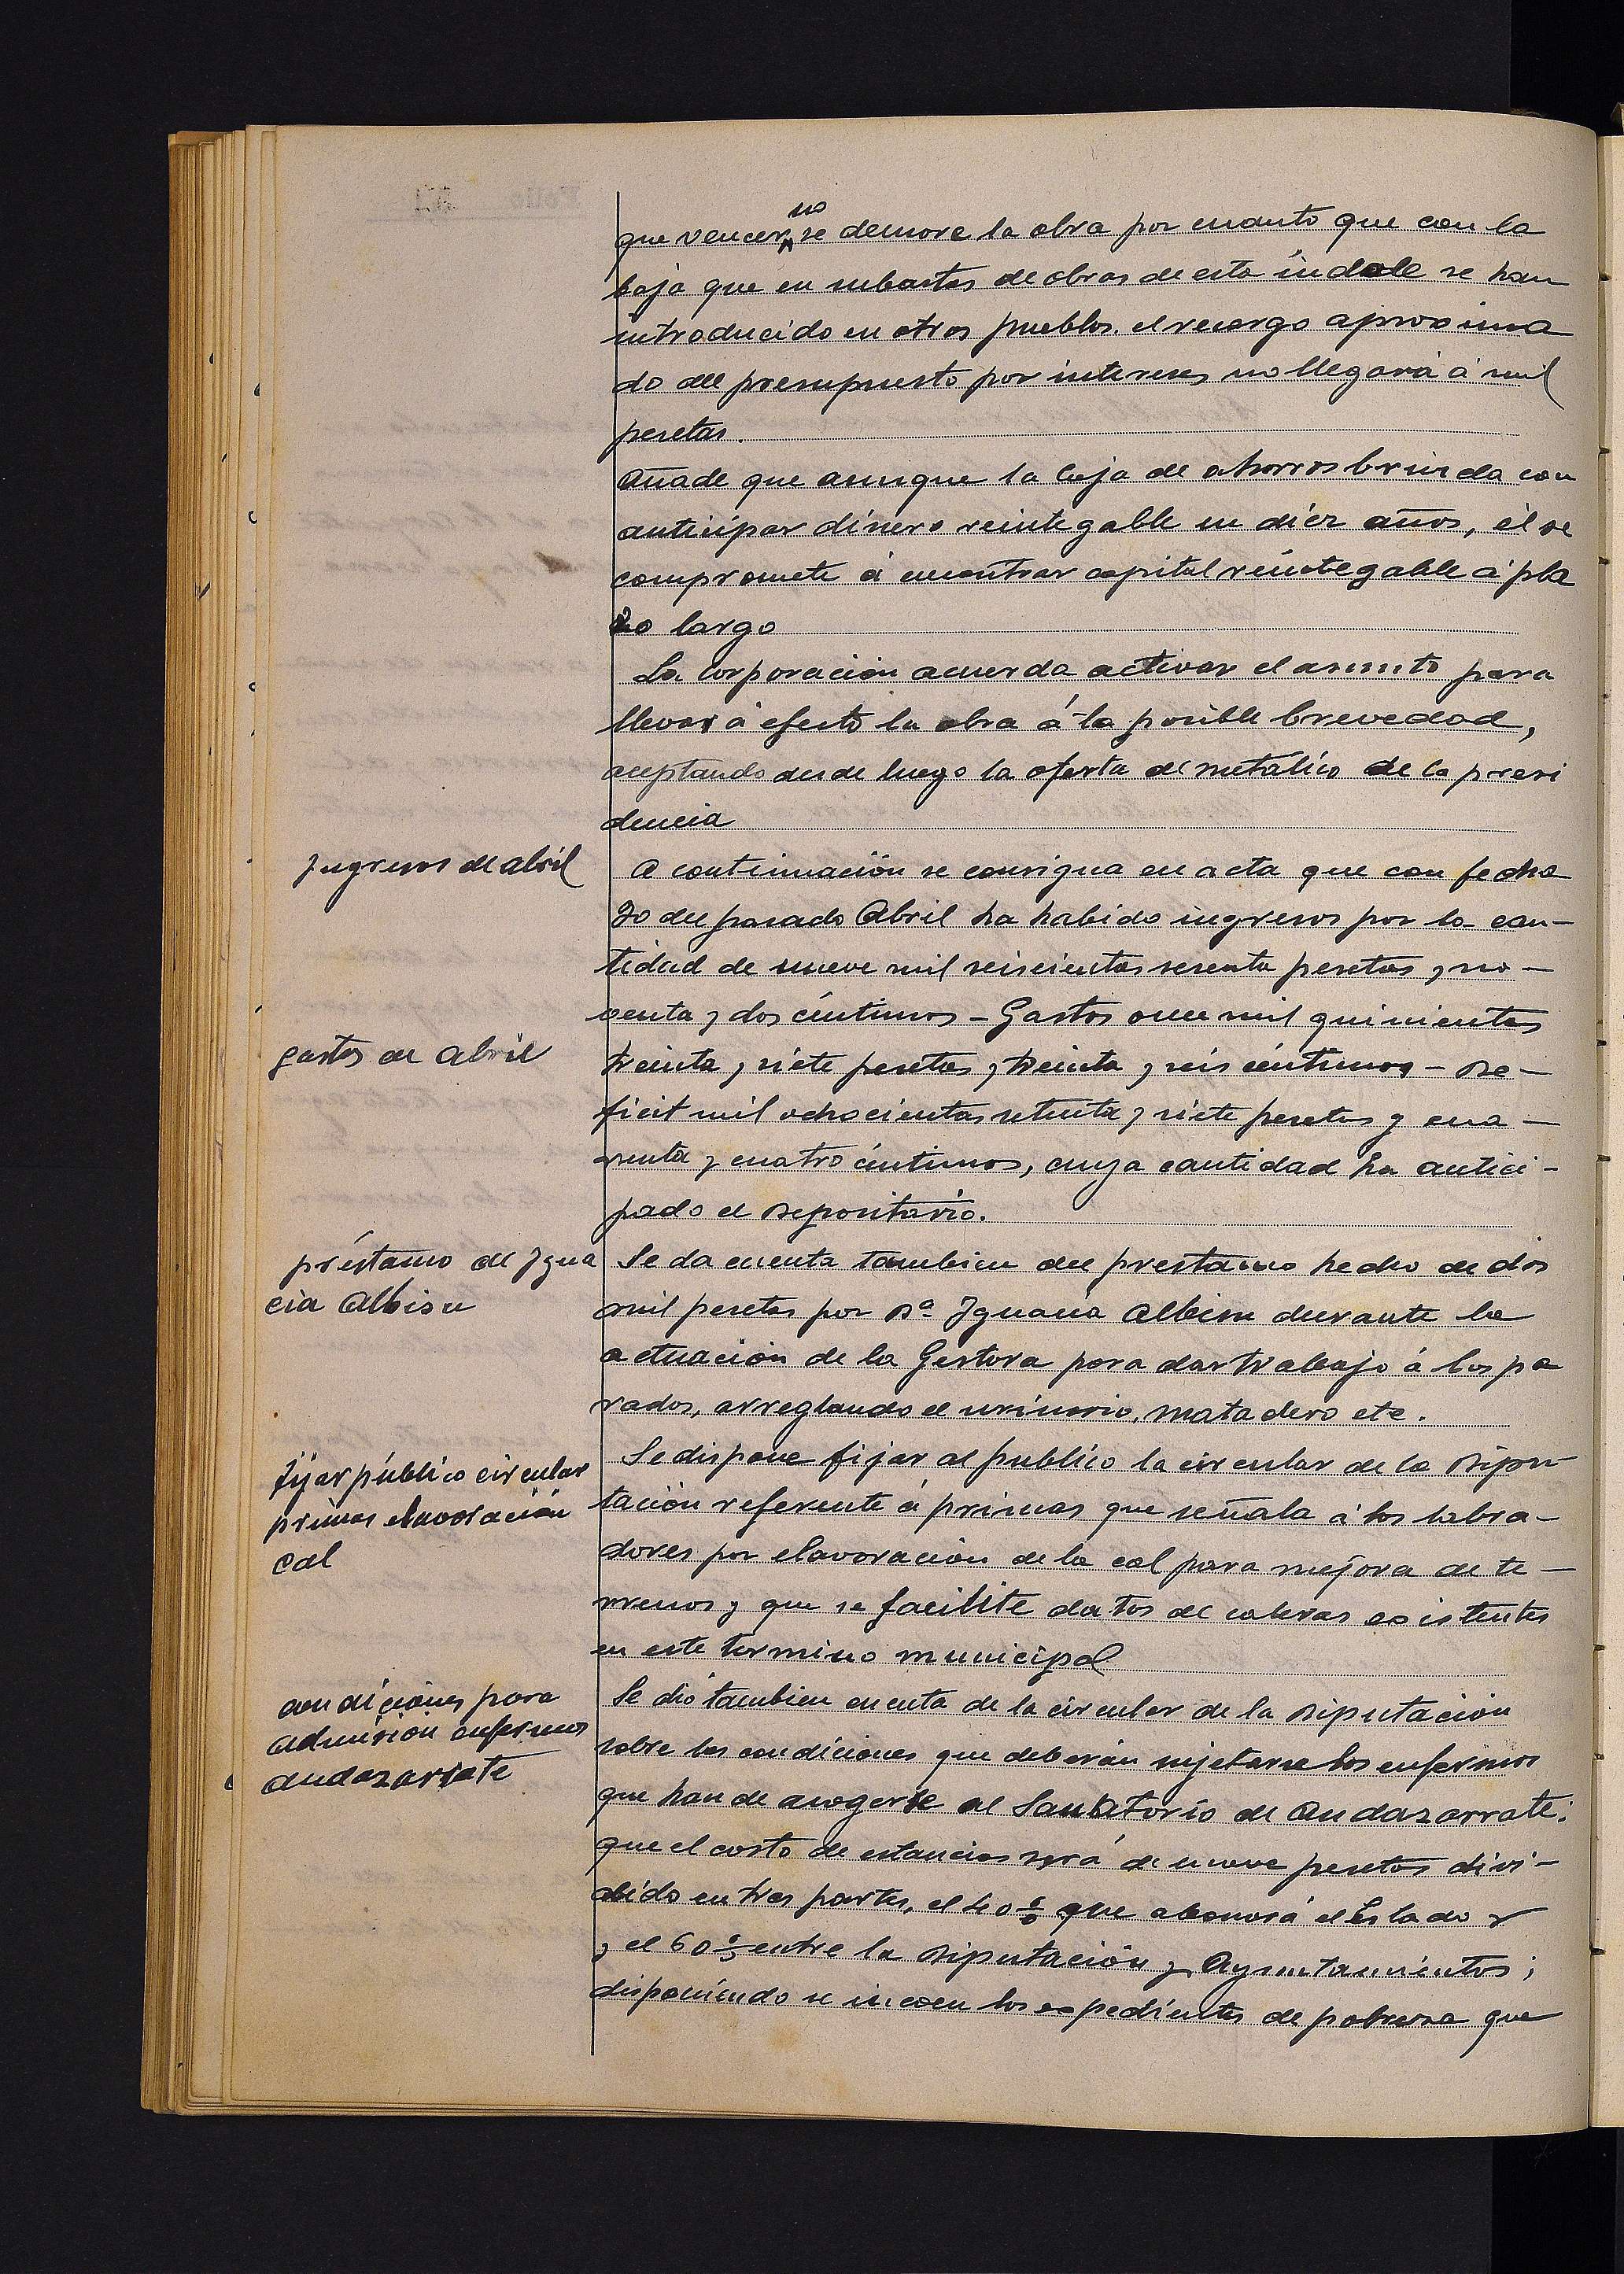 no
que vencer se demore la obra por cuanto que con la
baja que en subastas de obras de esta índole se han
introducido en otros pueblos. el recargo aproxima
do del presupuesto por intereses no llegará á mil
pesetas.
Añade que aunque la Caja de ahorros brinda con
anticipar dinero reintegable en diez años, él se
compromete á encontrar capital reintegable á pla
zo largo
La Corporación acuerda activar el asunto para
llevar á efecto la obra á la posible brevedad,
aceptando desde luego la oferta de metálico de la presi
dencia
Ingresos de abril
A continuación se consigna en acta que con fecha
30 del pasado Abril ha habido ingresos por la can-
tidad de nueve mil seiscientas sesenta pesetas y no-
venta y dos céntimos - Gastos once mil quinientas
gastos de abril
treinta y siete pesetas y treinta y seis céntimos - De-
ficit mil ochocientas setenta y siete pesetas y cua-
renta y cuatro céntimos, cuya cantidad ha antici-
pado el Depositario.
préstamo de Igna
cia Albisu
Se da cuenta tambien del prestamo hecho de dos
mil pesetas por Dª Ignacia Albisu durante la
actuación de la Gestora para dar trabajo á los pa
rados, arreglando el urinario, matadero etc.
fijar público circular
primas elavoración
cal
Se dispone fijar al publico la circular de la Dipu-
tación referente á primas que señala á los labra-
dores por elavoración de la cal para mejora de te-
rrenos y que se facilite datos de caleras existentes
en este termino municipal
condiciones para
admisión enfermos
andazarrate
Se dió tambien cuenta de la circular de la Diputación
sobre las condiciones que deberán sujetarse los enfermos
que han de acogerse al Sanatorio de Andazarrate:
que el costo de estancias será de nueve pesetas divi-
dido en tres partes, el 40 % que abonará el Estado y
y el 60 % entre la Diputación y Ayuntamientos;
disponiendo se incoen los expedientes de pobreza que